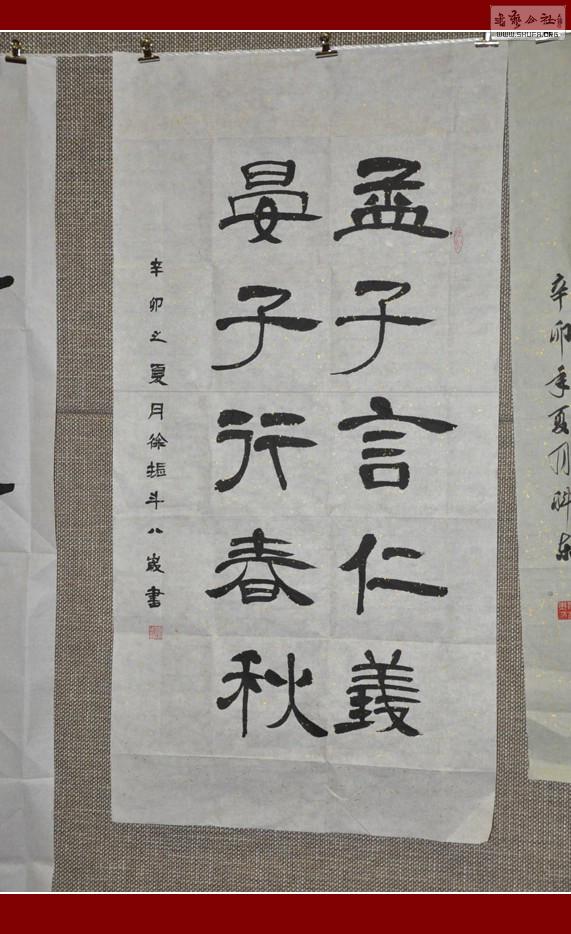 孟子言仁義
晏子行春秋
辛卯之夏月徐堃斗八歲書
辛卯年夏月
書法公社
WWW.SHUFA.ORG